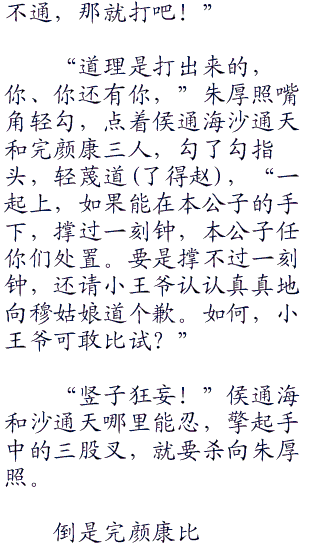 不通，那就打吧！”
“道理是打出来的，
你、你还有你，”朱厚照嘴
角轻勾，点着侯通海沙通天
和完颜康三人，勾了勾指
头，轻蔑道(了得赵)，“一
起上，如果能在本公子的手
下，撑过一刻钟，本公子任
你们处置。要是撑不过一刻
钟，还请小王爷认认真真地
向穆姑娘道个歉。如何，小
王爷可敢比试？”
“竖子狂妄！”侯通海
和沙通天哪里能忍，擎起手
中的三股叉，就要杀向朱厚
照。
倒是完颜康比